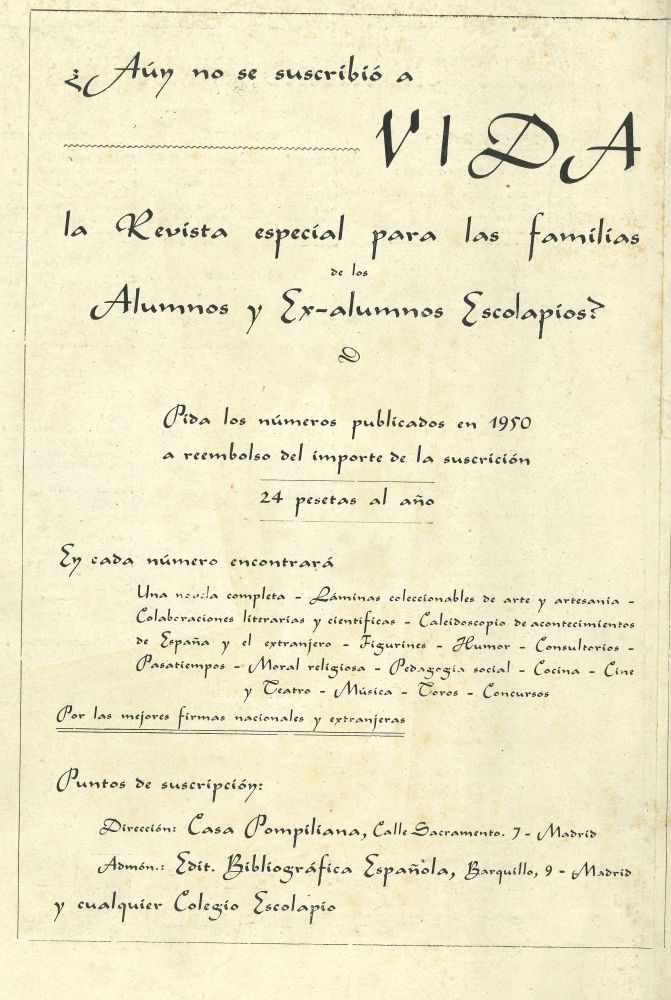 ¿Aún no se suscribió a
VIDA
la Revista especial para las familias
de los
Alumnos y Ex-alumnos Escolapios?
Pida los números publicados en 1950
a reembolso del importe de la suscrición
24 pesetas al año
En cada número encontrará
Una novela completa - Láminas coleccionables de arte y artesanía -
Colaboraciones literarias y científicas - Caleidoscopio de acontecimientos
de España y el extranjero - Figurines - Humor - Consultorios -
Pasatiempos - Moral religiosa - Pedagogía social - Cocina - Cine
y Teatro - Música - Toros - Concursos
Por las mejores firmas nacionales y extranjeras
Puntos de suscripción:
Dirección: Casa Pompiliana, Calle Sacramento. 7 - Madrid
Admón.: Edit. Bibliográfica Española, Barquillo, 9 - Madrid
y cualquier Colegio Escolapio